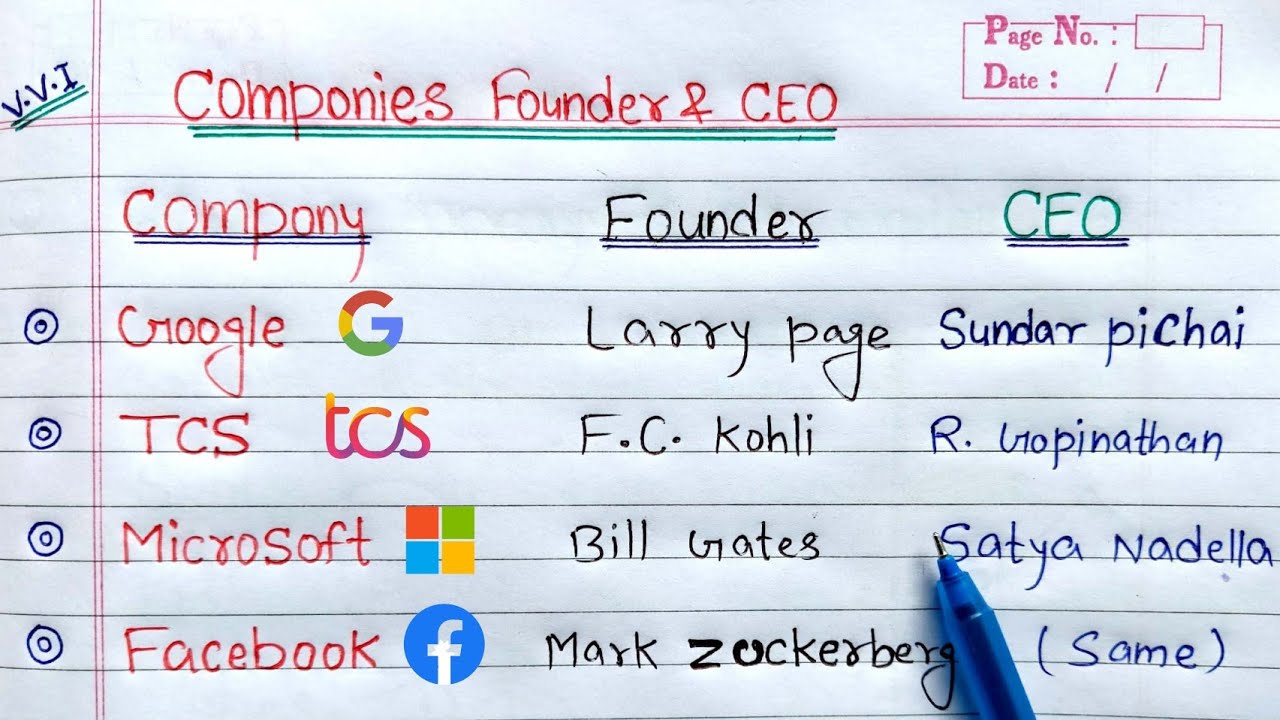 Page No. :
Date : / /
V.V.I
Componies Founder & CEO
Compony Founder CEO
Google G Larry page Sundar pichai
TCS tcs F.C. Kohli R. Gopinathan
Microsoft Bill Gates Satya Nadella
Facebook f Mark Zuckerberg (Same)